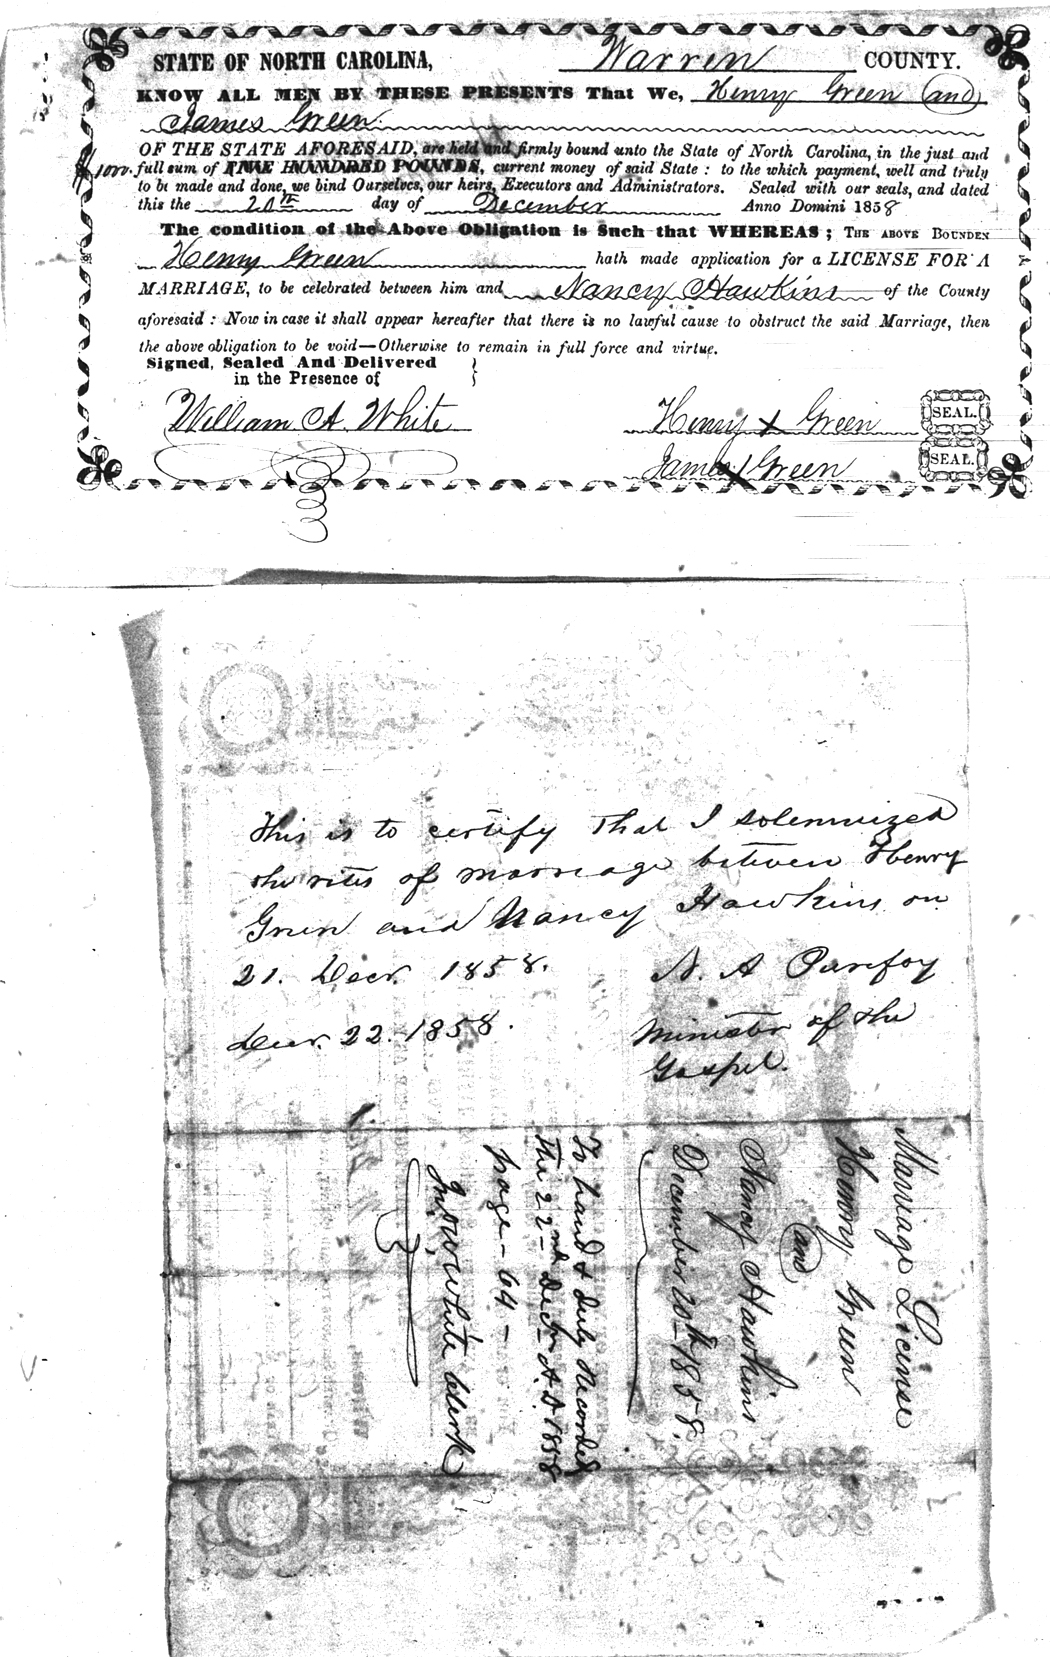 STATE OF NORTH CAROLINA, Warren COUNTY.
KNOW ALL MEN BY THESE PRESENTS That We, Henry Green (and)
James Green.
OF THE STATE AFORESAID, are held and firmly bound unto the State of North Carolina, in the just and
$1000. full sum of FIVE HUNDRED POUNDS, current money of said State : to the which payment, well and truly
to be made and done, we bind Ourselves, our heirs, Executors and Administrators. Sealed with our seals, and dated
this the 20th day of December Anno Domini 1858
The condition of the Above Obligation is Such that WHEREAS ; THE ABOVE BOUNDEN
Henry Green hath made application for a LICENSE FOR A
MARRIAGE, to be celebrated between him and Nancy Hawkins of the County
aforesaid : Now in case it shall appear hereafter that there is no lawful cause to obstruct the said Marriage, then
the above obligation to be void—Otherwise to remain in full force and virtue.
Signed, Sealed And Delivered
in the Presence of
William A. White Henry X Green SEAL.
James X Green SEAL.
This is to certify that I solemnized
the rites of marriage between Henry
Green and Nancy Hawkins on
21. Decr. 1858. N. A Purefoy
Decr. 22. 1858. Minister of the
Gospel.
Marriage License
Henry Green
(and)
Nancy Hawkins
December 20th 1858.
To hand & duly Recorded
the 22nd Decr A.D 1858
page - 64 -
Jno W White Clerk